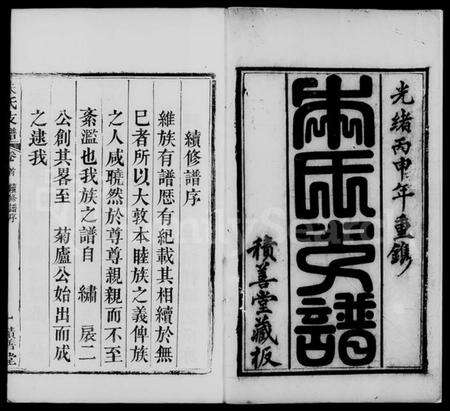 光緒丙申年重鐫
朱氏支譜
積善堂藏板
續修譜序
維族有譜厯有紀載其相續於無
巳者所以大敦本睦族之義俾族
之人咸曉然於尊尊親親而不至
紊濫也我族之譜自 繡 扆二
公創其畧至 菊廬公始出而成
之逮我
氏支譜
卷首 續修譜序
一 積善堂